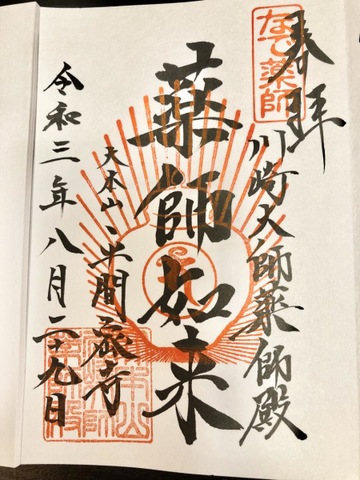 奉拝
なで薬師
川崎大師薬師殿
薬師如来
大本山平間寺
令和三年八月二十九日